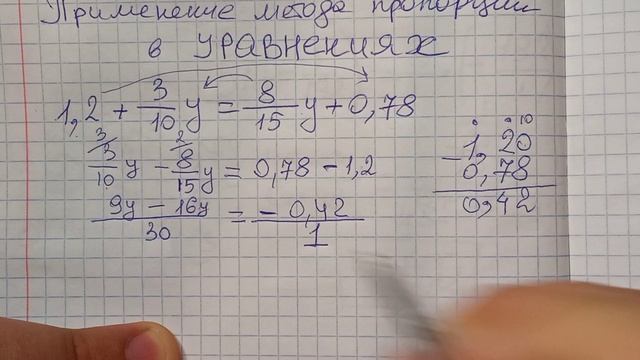 Применение метода пропорции
в уравнениях
1,2 + 3/10 y = 8/15 y + 0,78
3/10 y (3 - 8/15 y (2 = 0,78 - 1,2
9y - 16y / 30 = - 0,42 / 1
10
- 1,20
0,78
0,42